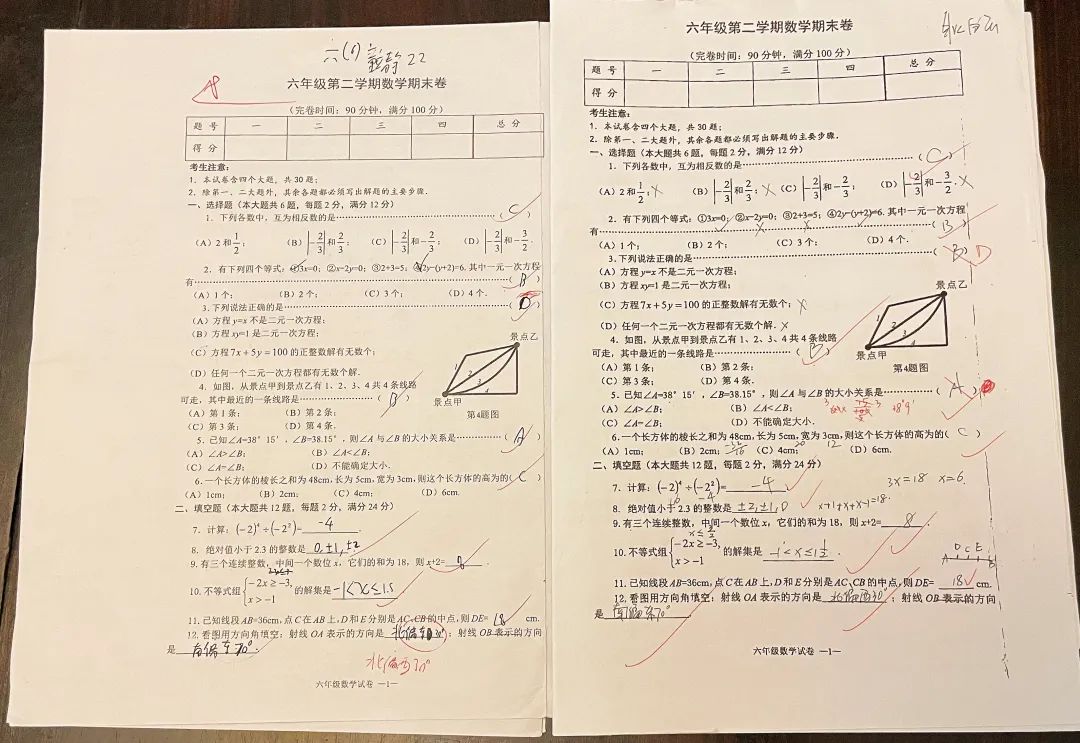 六(1)
22
A
六年级第二学期数学期末卷
(完卷时间：90分钟，满分100分)
题 号 一 二 三 四 总 分
得 分
考生注意：
1．本试卷含四个大题，共30题；
2．除第一、二大题外，其余各题都必须写出解题的主要步骤．
一、选择题（本大题共6题，每题2分，满分12分）
1．下列各数中，互为相反数的是………………………………（ C ）
(A) 2和1/2； (B) |-2/3|和2/3； (C) |-2/3|和-2/3； (D) |-2/3|和-3/2．
2．有下列四个等式：①3x=0；②x−2y=0；③2+3=5；④2y−(y+2)=6. 其中一元一次方程
有………………………………（ B ）
(A) 1个； (B) 2个； (C) 3个； (D) 4个．
3.下列说法正确的是………………………………（ D ）
(A) 方程 y=x 不是二元一次方程；
(B) 方程 xy=1 是二元一次方程；
(C) 方程 7x+5y=100 的正整数解有无数个；
(D) 任何一个二元一次方程都有无数个解．
4．如图，从景点甲到景点乙有1、2、3、4共4条线路
可走，其中最近的一条线路是………………（ B ）
(A) 第1条； (B) 第2条；
(C) 第3条； (D) 第4条．
景点乙
1
2
3
4
景点甲
第4题图
5．已知∠A=38°15′，∠B=38.15°，则∠A与∠B的大小关系是…………（ A ）
(A) ∠A>∠B； (B) ∠A<∠B；
(C) ∠A=∠B； (D) 不能确定大小．
6.一个长方体的棱长之和为48cm,长为5cm,宽为3cm,则这个长方体的高为的（ C ）
(A) 1cm； (B) 2cm； (C) 4cm； (D) 6cm.
二、填空题（本大题共12题，每题2分，满分24分）
7．计算：(−2)⁴÷(−2²)= -4 ．
8．绝对值小于2.3的整数是 0,±1,±2
9．有三个连续整数，中间一个数位x，它们的和为18，则x+2= 8 ．
10．不等式组{−2x≥−3, x>−1 的解集是 -1<x≤1.5
11．已知线段AB=36cm，点C在AB上，D和E分别是AC、CB的中点，则DE= 18 cm.
12．看图用方向角填空：射线OA表示的方向是 北偏 ；射线OB表示的方向
是 南偏东70° ．
北偏西30°
六年级数学试卷 —1—
六年级第二学期数学期末卷
(完卷时间：90分钟，满分100分)
题 号 一 二 三 四 总 分
得 分
考生注意：
1．本试卷含四个大题，共30题；
2．除第一、二大题外，其余各题都必须写出解题的主要步骤．
一、选择题（本大题共6题，每题2分，满分12分）
1．下列各数中，互为相反数的是………………………………（ C ）
(A) 2和1/2；× (B) |-2/3|和2/3；× (C) |-2/3|和-2/3； (D) |-2/3|和-3/2．×
2．有下列四个等式：①3x=0；②x−2y=0；③2+3=5；④2y−(y+2)=6. 其中一元一次方程
有………………………………（ B ）
(A) 1个； (B) 2个； (C) 3个； (D) 4个．
3.下列说法正确的是………………………………（ B ） D
(A) 方程 y=x 不是二元一次方程；
(B) 方程 xy=1 是二元一次方程；
(C) 方程 7x+5y=100 的正整数解有无数个；×
(D) 任何一个二元一次方程都有无数个解．×
4．如图，从景点甲到景点乙有1、2、3、4共4条线路
可走，其中最近的一条线路是………………（ B ）
(A) 第1条； (B) 第2条：
(C) 第3条； (D) 第4条．
景点乙
1
2
3
4
景点甲
第4题图
5．已知∠A=38°15′，∠B=38.15°，则∠A与∠B的大小关系是…………（ A ）
(A) ∠A>∠B； (B) ∠A<∠B；
38°9′
(C) ∠A=∠B； (D) 不能确定大小．
6.一个长方体的棱长之和为48cm,长为5cm,宽为3cm,则这个长方体的高为的（ C ）
(A) 1cm； (B) 2cm； (C) 4cm； (D) 6cm.
20 12
二、填空题（本大题共12题，每题2分，满分24分）
3x=18 x=6.
7．计算：(−2)⁴÷(−2²)= −4
16 -4
8．绝对值小于2.3的整数是 ±2,±1,0
x+1+x+x-1=18.
9．有三个连续整数，中间一个数位x，它们的和为18，则x+2= 8 ．
10．不等式组{−2x≥−3, x>−1 的解集是 -1<x≤1½ ．
D C E
A B
11．已知线段AB=36cm，点C在AB上，D和E分别是AC、CB的中点，则DE= 18 cm.
12．看图用方向角填空：射线OA表示的方向是 北偏西30° ；射线OB表示的方向
是 南偏东70°
六年级数学试卷 —1—